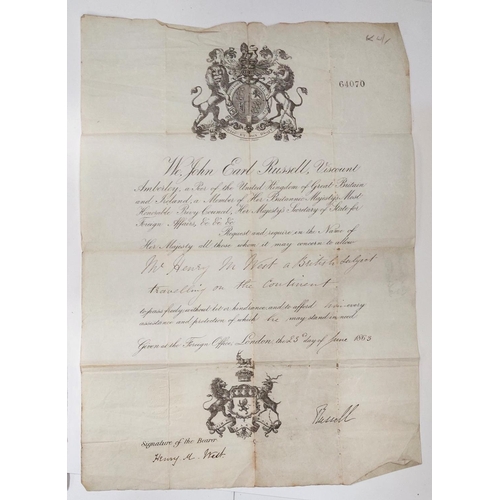 64070
We, John Earl Russell, Viscount
Amberley, a Peer of the United Kingdom of Great Britain
and Ireland, a Member of Her Britannic Majesty's Most
Honorable Privy Council, Her Majesty's Secretary of State for
Foreign Affairs, &c &c &c
Request and require in the Name of
Her Majesty all those whom it may concern to allow
Mr Henry M West a British Subject
travelling on the Continent
to pass freely without let or hindrance, and to afford him every
assistance and protection of which he may stand in need.
Given at the Foreign Office, London, the 23d day of June 1863
Russell
Signature of the Bearer
Henry M West